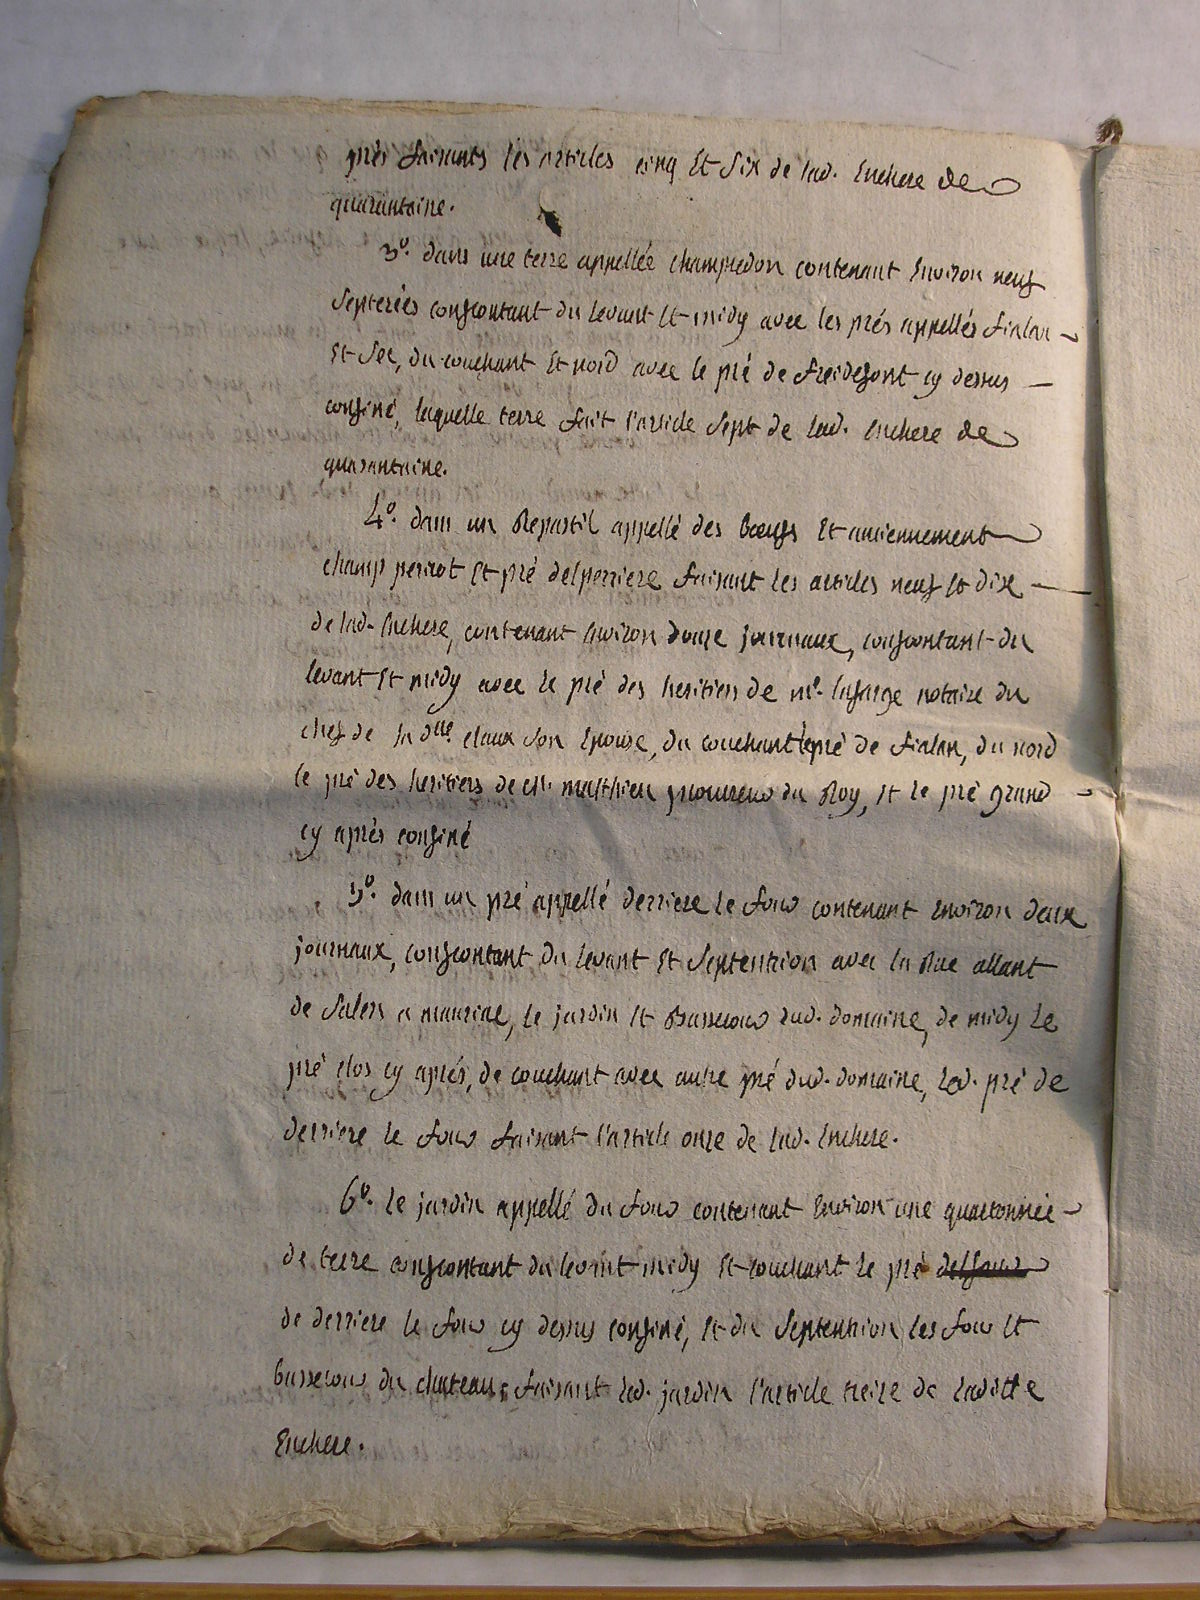 prés faisants les articles cinq et six de lad. Enchere de
quarantaine.
3º. dans une terre appellée champredon contenant Environ neuf
Septerées confrontant du levant Et midy avec les prés appellés fialan
Et Sec, du couchant Et nord avec le pré de freidefont cy dessus
confiné, laquelle terre fait l'article Sept de lad. Enchere de
quarantaine.
4º. dans un Repastil appellé des bœufs Et anciennement
champ perrot Et pré delperriere faisant les articles neuf Et dix
de lad. Enchere, contenant Environ douze journaux, confrontant du
levant Et midy avec le pré des heritiers de me. lafarge notaire du
chef de la dlle. claux son Epouse, du couchant le pré de fialan, du nord
le pré des heritiers de Mr. matthieu procureur du Roy, Et le pré grand
cy après confiné
5º. dans un pré appellé derriere le four contenant Environ deux
journaux, confrontant du levant Et Septentrion avec la Rue allant
de Salers a mauriac, le jardin Et Bassecour dud. domaine, de midy le
pré clos cy aprés, de couchant avec autre pré dud. domaine, led. pré de
derriere le four faisant l'article onze de lad. Enchere.
6º. le jardin appellé du four contenant Environ une quartonnée
de terre confrontant du levant midy Et couchant le pré
de derriere le four cy dessus confiné, Et du Septentrion les four Et
bassecour du chateau, faisant led. jardin l'article treize de laditte
Enchere.